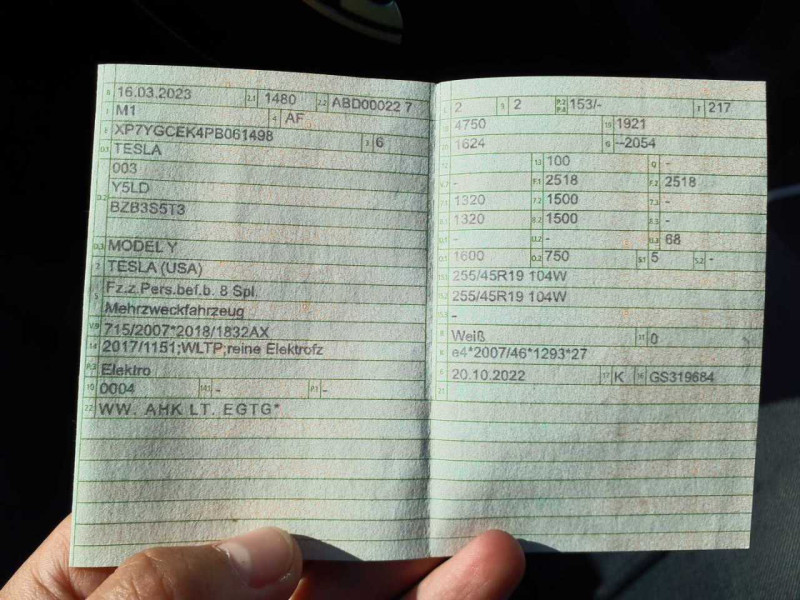 B 16.03.2023 2.1 1480 2.2 ABD00022 7
J M1 4 AF
E XP7YGCEK4PB061498 3 6
D.1 TESLA
003
D.2 Y5LD
BZB3S5T3
D.3 MODEL Y
2 TESLA (USA)
5 Fz.z.Pers.bef.b. 8 Spl.
Mehrzweckfahrzeug
V.9 715/2007*2018/1832AX
14 2017/1151;WLTP;reine Elektrofz
P.3 Elektro
10 0004 14.1 - P.1 -
22 WW. AHK LT. EGTG*
L 2 9 2 P.2 P.4 153/- T 217
18 4750 19 1921
20 1624 G --2054
12 - 13 100 Q -
V.7 - F.1 2518 F.2 2518
7.1 1320 7.2 1500 7.3 -
8.1 1320 8.2 1500 8.3 -
U.1 - U.2 - U.3 68
O.1 1600 O.2 750 S.1 5 S.2 -
15.1 255/45R19 104W
15.2 255/45R19 104W
15.3 -
R Weiß 11 0
K e4*2007/46*1293*27
6 20.10.2022 17 K 16 GS319684
21